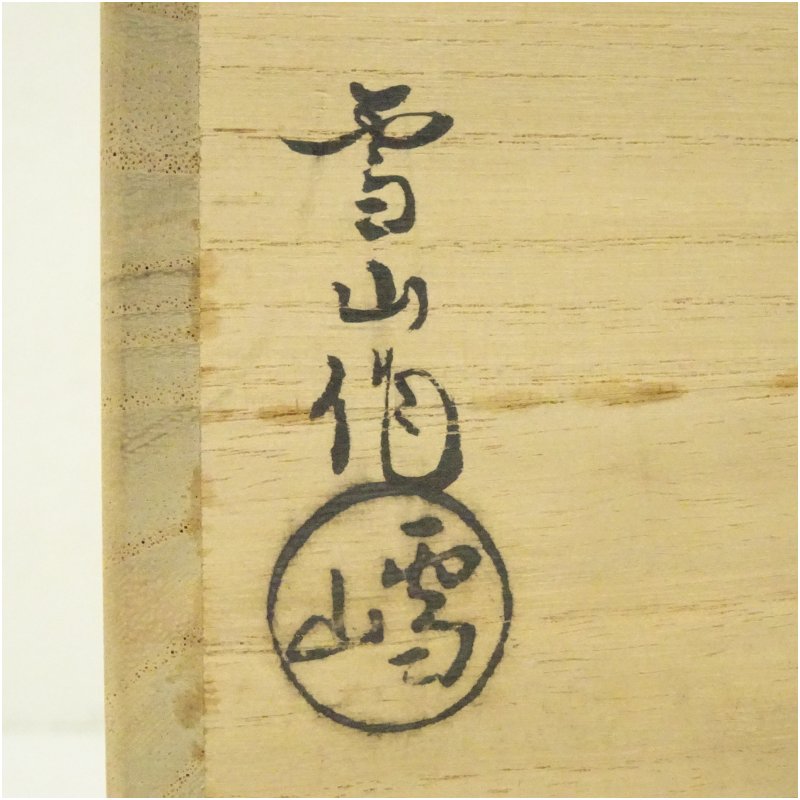 雪山作
雪山